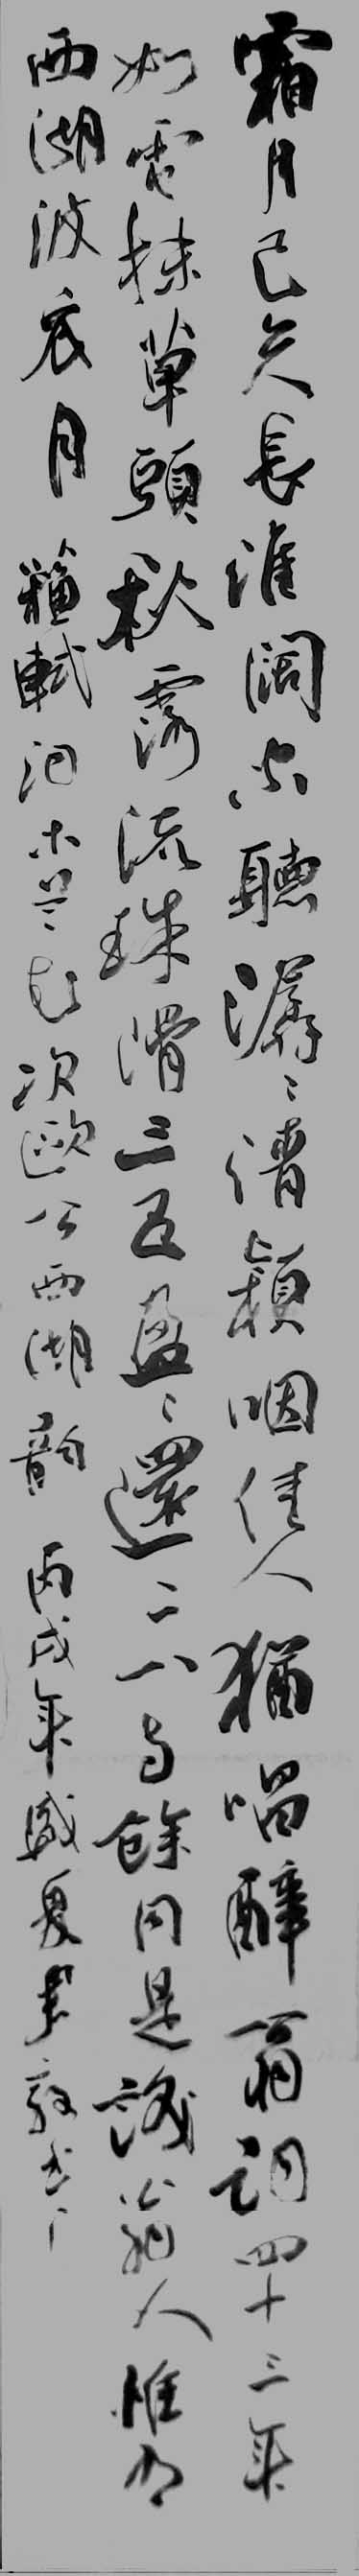 霜月已失長淮闊空聽潺〻清潁咽佳人猶唱醉翁詞四十三年
如電抹草頭秋露流珠滑三五盈〻還二八与餘同是識翁人惟有
西湖波底月 蘇軾詞木兰花次歐公西湖韻 丙戌年盛夏